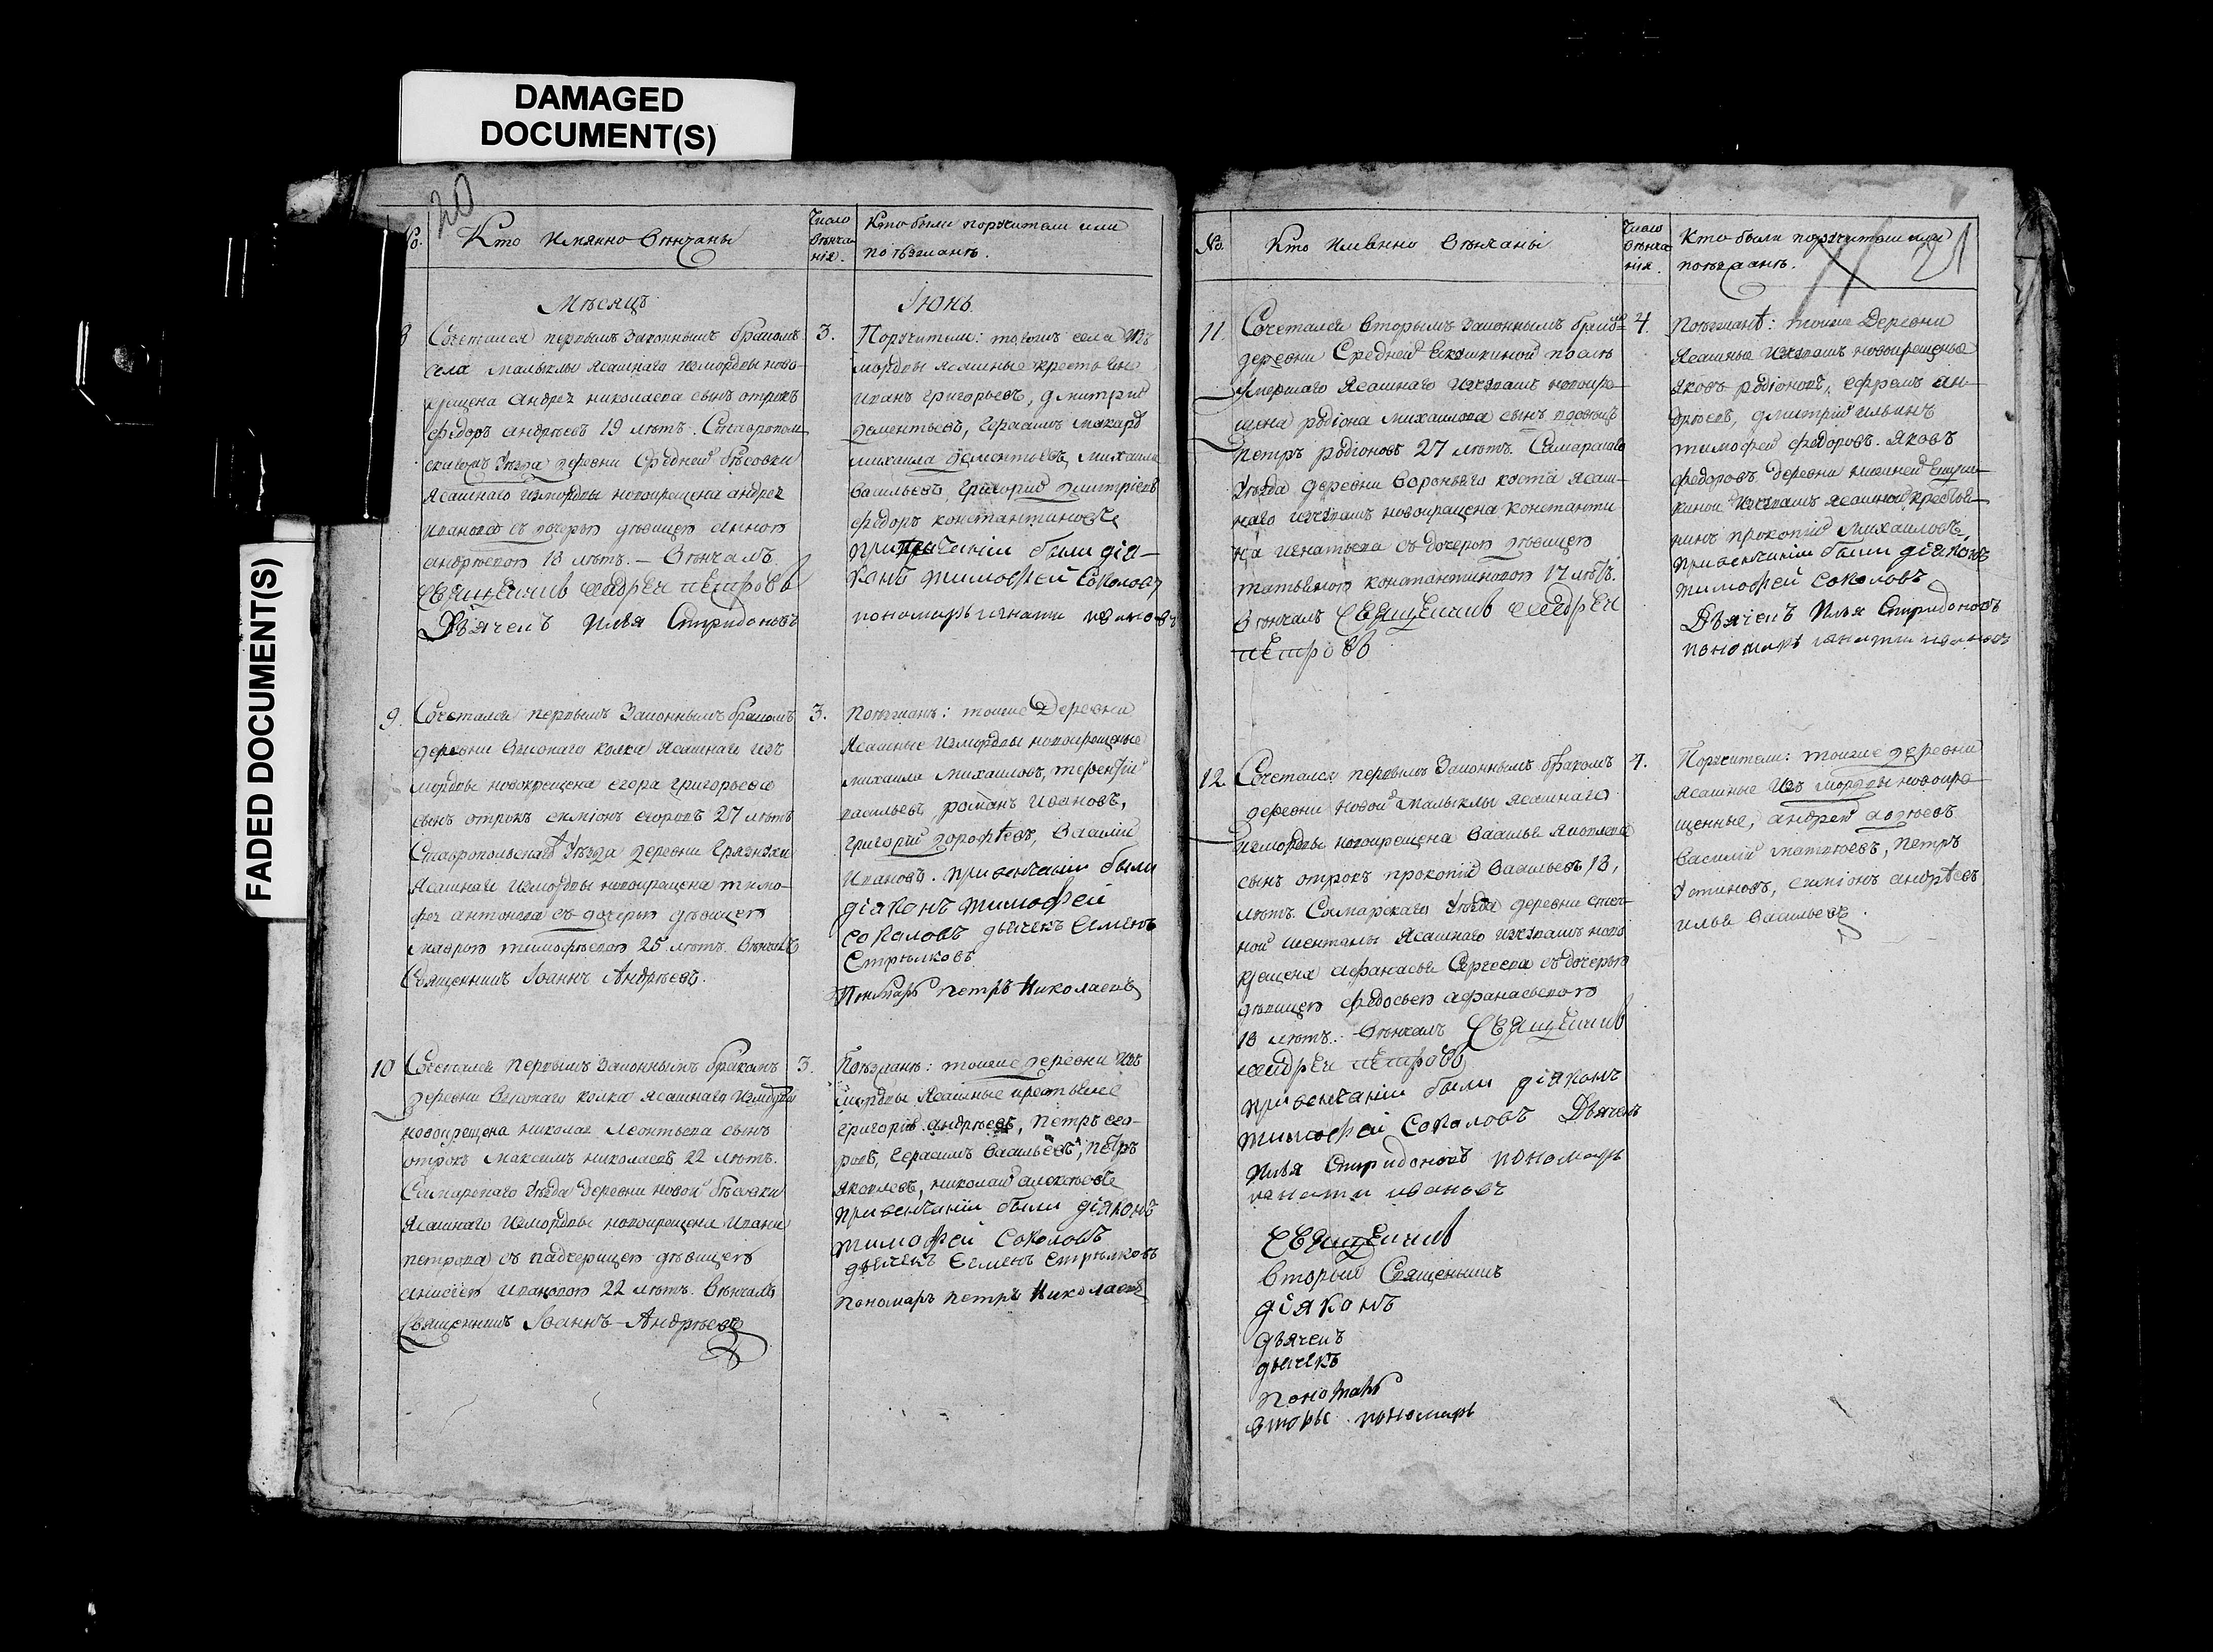 DAMAGED
DOCUMENT(S)
FADED DOCUMENT(S)
20
№.
Кто имянно венчаны
Число
венча
нія.
Кто были поручители или
поезжанѣ.
Мѣсяцъ
Іюнь
8
Сочетался первымъ законнымъ бракомъ
села малыклы ясашнаго измордвы ново-
крещена андрея николаева сынъ отрокъ
федоръ андрѣевъ 19 лѣтъ. Ставрополь
скагожъ уѣзда деревни Средней бѣсовки
ясашнаго измордвы новокрещена андрея
иванова съ дочерью дѣвицею анною
андрѣевою 18 лѣтъ. – Вѣнчалъ
Священникъ андреи петровъ
Дьячекъ Илья Спиридоновъ
3.
Поручители: тогожъ села Изъ
мордвы ясашные крестьяне
иванъ григорьевъ, дмитрий
дементьевъ, герасимъ макаръ
михаила дементьевъ, михаила
васильевъ, григорий дмитріевъ
федоръ константиновъ
при венчаніи были дія-
конъ тимофей Соколовъ
пономарь игнати ивановъ
9.
Сочетался первымъ законнымъ бракомъ
деревни колка ясашнаго изъ
мордвы новокрещена егора григорьева
сынъ отрокъ симіонъ егоровъ 27 лѣтъ
Ставропольскаго уѣзда деревни грязнухи
ясашнаго измордвы новокрещена тимо-
фея антонова съ дочерью дѣвицею
маврою тимофѣевою 25 лѣтъ. Вѣнчалъ
Священникъ Іоаннъ Андрѣевъ.
3.
Поезжанъ: тоиже Деревни
ясашные измордвы новокрещеные
михаила михаиловъ, терентій
васильевъ, романъ ивановъ,
григорій дорофѣевъ, василій
ивановъ. при венчаніи были
діяконъ тимофеи
соколовъ дьячекъ Семенъ
Стрѣлковъ
Пономарь петръ Николаевъ
10
Сочетался первымъ законнымъ бракомъ
деревни колка ясашнаго измордвы
новокрещена николая леонтьева сынъ
отрокъ максимъ николаевъ 22 лѣтъ.
Самарскаго уѣзда деревни новой бѣсовки
ясашнаго измордвы новокрещена ивана
петрова съ падчерицею дѣвицею
ивановою 22 лѣтъ. Вѣнчалъ
Священникъ Іоаннъ Андрѣевъ
3.
Поезжанѣ: тоиже деревни изъ
мордвы ясашные крестьяне
григорій андрѣевъ, петръ его-
ровъ, герасимъ васильевъ, петръ
яковлевъ, николай алексѣевъ
при венчаніи были діяконъ
тимофей Соколовъ
дьячекъ Семенъ Стрѣлковъ
пономарь петръ Николаевъ
21
№.
Кто имянно венчаны
Число
венча
нія.
Кто были поручители или
поезжанѣ.
11.
Сочетался вторымъ законнымъ бракомъ
деревни Средней Екошкиной послѣ
умершаго ясашнаго изчувашъ новокре-
щена родіона михаилова сынъ вдовецъ
петръ родіоновъ 27 лѣтъ. Самарскаго
уѣзда деревни вороньяго куста ясаш-
наго изчувашъ новокрещена константи
на игнатьева съ дочерью дѣвицею
татьяною константиновою 17 лѣтъ.
Вѣнчалъ Священникъ андреи
петровъ
4.
Поезжанѣ: тоиже Деревни
ясашные изчувашъ новокрещеные
яковъ родіоновъ, ефремъ ан-
дрѣевъ, дмитрий ильинъ
тимофей федоровъ. яковъ
федоровъ деревни нижней
киной изчувашъ ясашной крестья-
нинъ прокопій михаиловъ,
при венчаніи были діяконъ
тимофей Соколовъ
Дьячекъ Илья Спиридоновъ
пономарь игнати ивановъ
12.
Сочетался первымъ законнымъ бракомъ
деревни новой малыклы ясашнаго
измордвы новокрещена василья яковлева
сынъ отрокъ прокопій васильевъ 18,
лѣтъ. Самарскаго уѣзда деревни степ-
ной шенталы ясашнаго изчувашъ ново
крещена афанасья Сергеева съ дочерью
дѣвицею федосьею афанасьевою
18 лѣтъ. – Вѣнчалъ Священникъ
андреи петровъ
при венчаніи были діяконъ
тимофей Соколовъ Дьячекъ
Илья Спиридоновъ пономарь
игнати ивановъ
4.
Поручители: тоиже деревни
ясашные изъ мордвы новокре-
щенные, андрей
василий матвѣевъ, петръ
устиновъ, симіонъ андрѣевъ
илья васильевъ.
Священникъ
Вторый Священникъ
діяконъ
дьячекъ
дьячекъ
пономарь
вторы пономарь